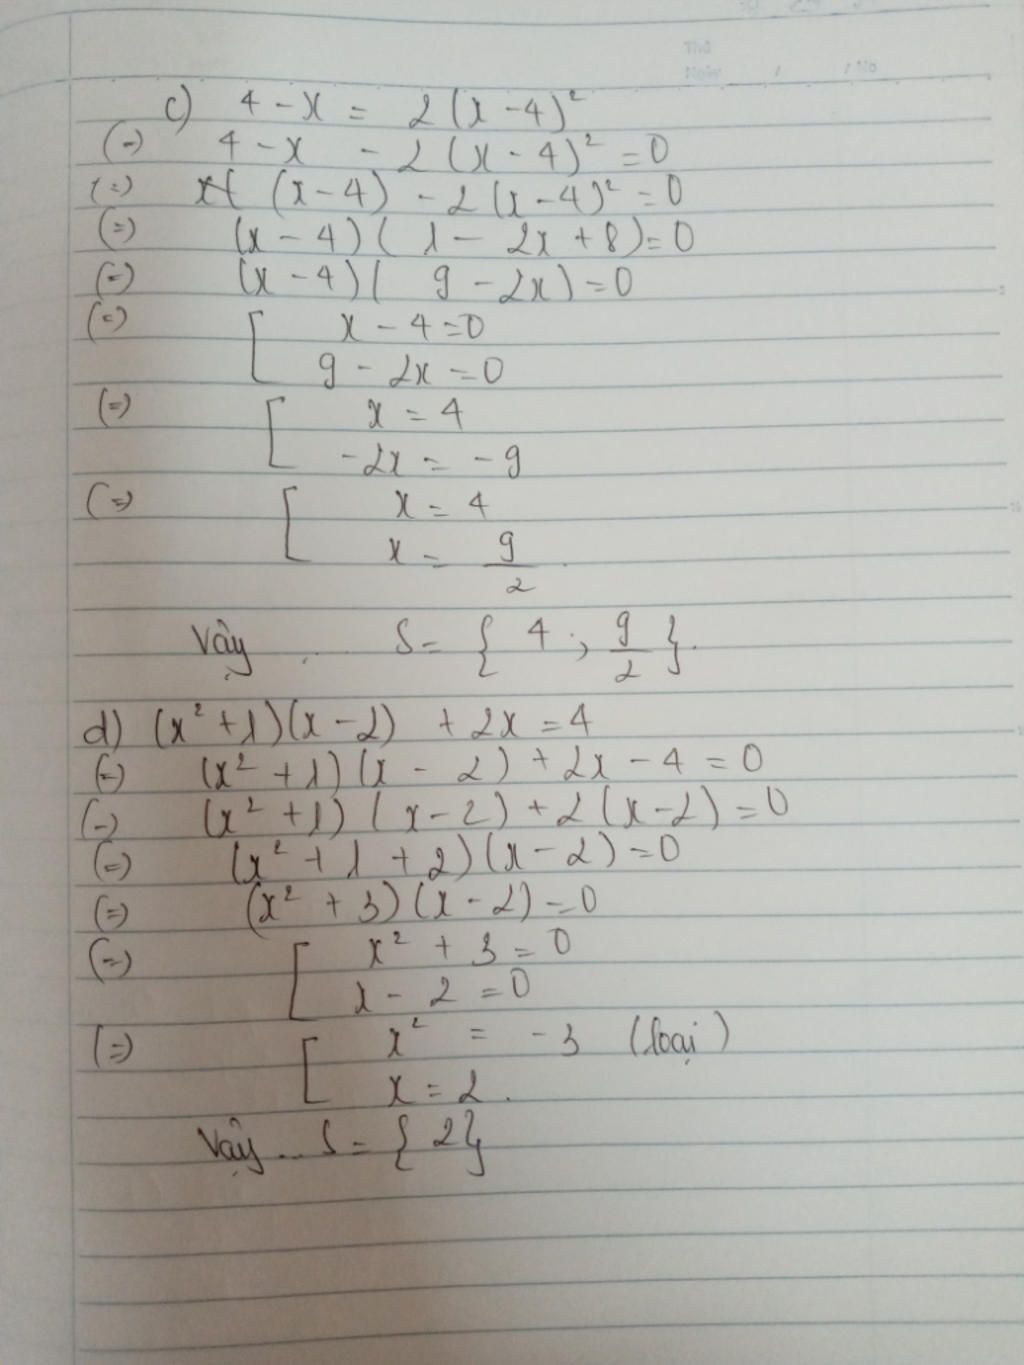 Thứ
Ngày / / No
c) 4 - x = 2(x - 4)²
(=) 4 - x - 2(x - 4)² = 0
(=) (x - 4) - 2(x - 4)² = 0
(=) (x - 4)(1 - 2x + 8) = 0
(=) (x - 4)( 9 - 2x) = 0
(=) [ x - 4 = 0
9 - 2x = 0
(=) [ x = 4
-2x = -9
(=) [ x = 4
x = 9/2
Vậy .. S = { 4 ; 9/2 }.
d) (x² + 1)(x - 2) + 2x = 4
(=) (x² + 1)(x - 2) + 2x - 4 = 0
(=) (x² + 1)(x - 2) + 2(x - 2) = 0
(=) (x² + 1 + 2)(x - 2) = 0
(=) (x² + 3)(x - 2) = 0
(=) [ x² + 3 = 0
x - 2 = 0
(=) [ x² = -3 (loại)
x = 2.
Vậy ... S = { 2 }